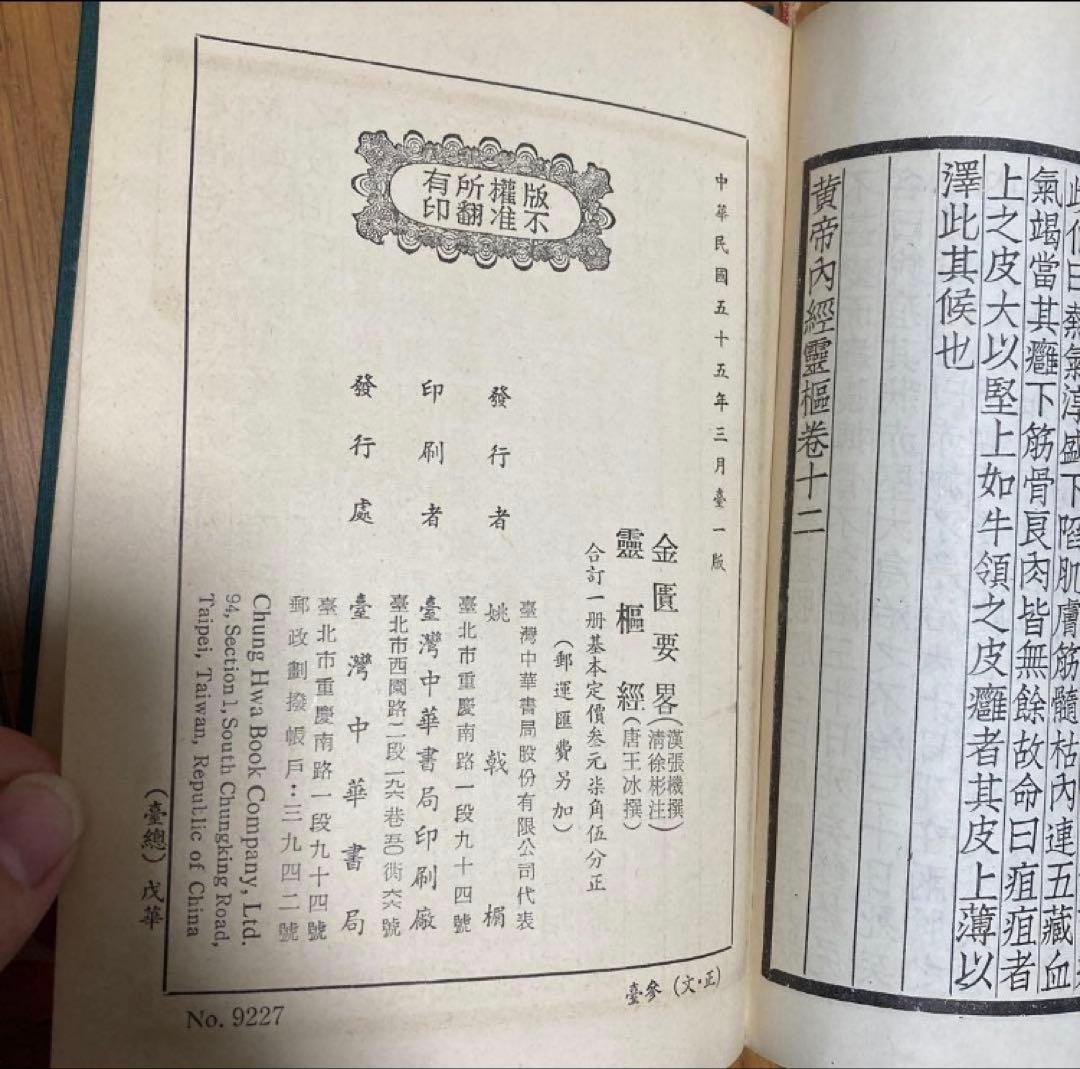 曰熱氣淳盛下陷肌膚筋髓枯內連五藏血
氣竭當其癰下筋骨良肉皆無餘故命曰疽疽者
上之皮夭以堅上如牛領之皮癰者其皮上薄以
澤此其候也
黃帝內經靈樞卷十二
中華民國五十五年三月臺一版
版權所有
不准翻印
金匱要畧(漢張機撰 清徐彬注)
靈樞經(唐王冰撰)
合訂一册基本定價叁元柒角伍分正
(郵運匯費另加)
發行者
臺灣中華書局股份有限公司代表
姚戟楣
臺北市重慶南路一段九十四號
印刷者
臺灣中華書局印刷廠
臺北市西園路二段巷衖號
發行處
臺灣中華書局
臺北市重慶南路一段九十四號
郵政劃撥帳戶:三九四二號
Chung Hwa Book Company, Ltd.
94, Section 1, South Chungking Road,
Taipei, Taiwan, Republic of China
(臺總)戊華
臺參(文·正)
No. 9227